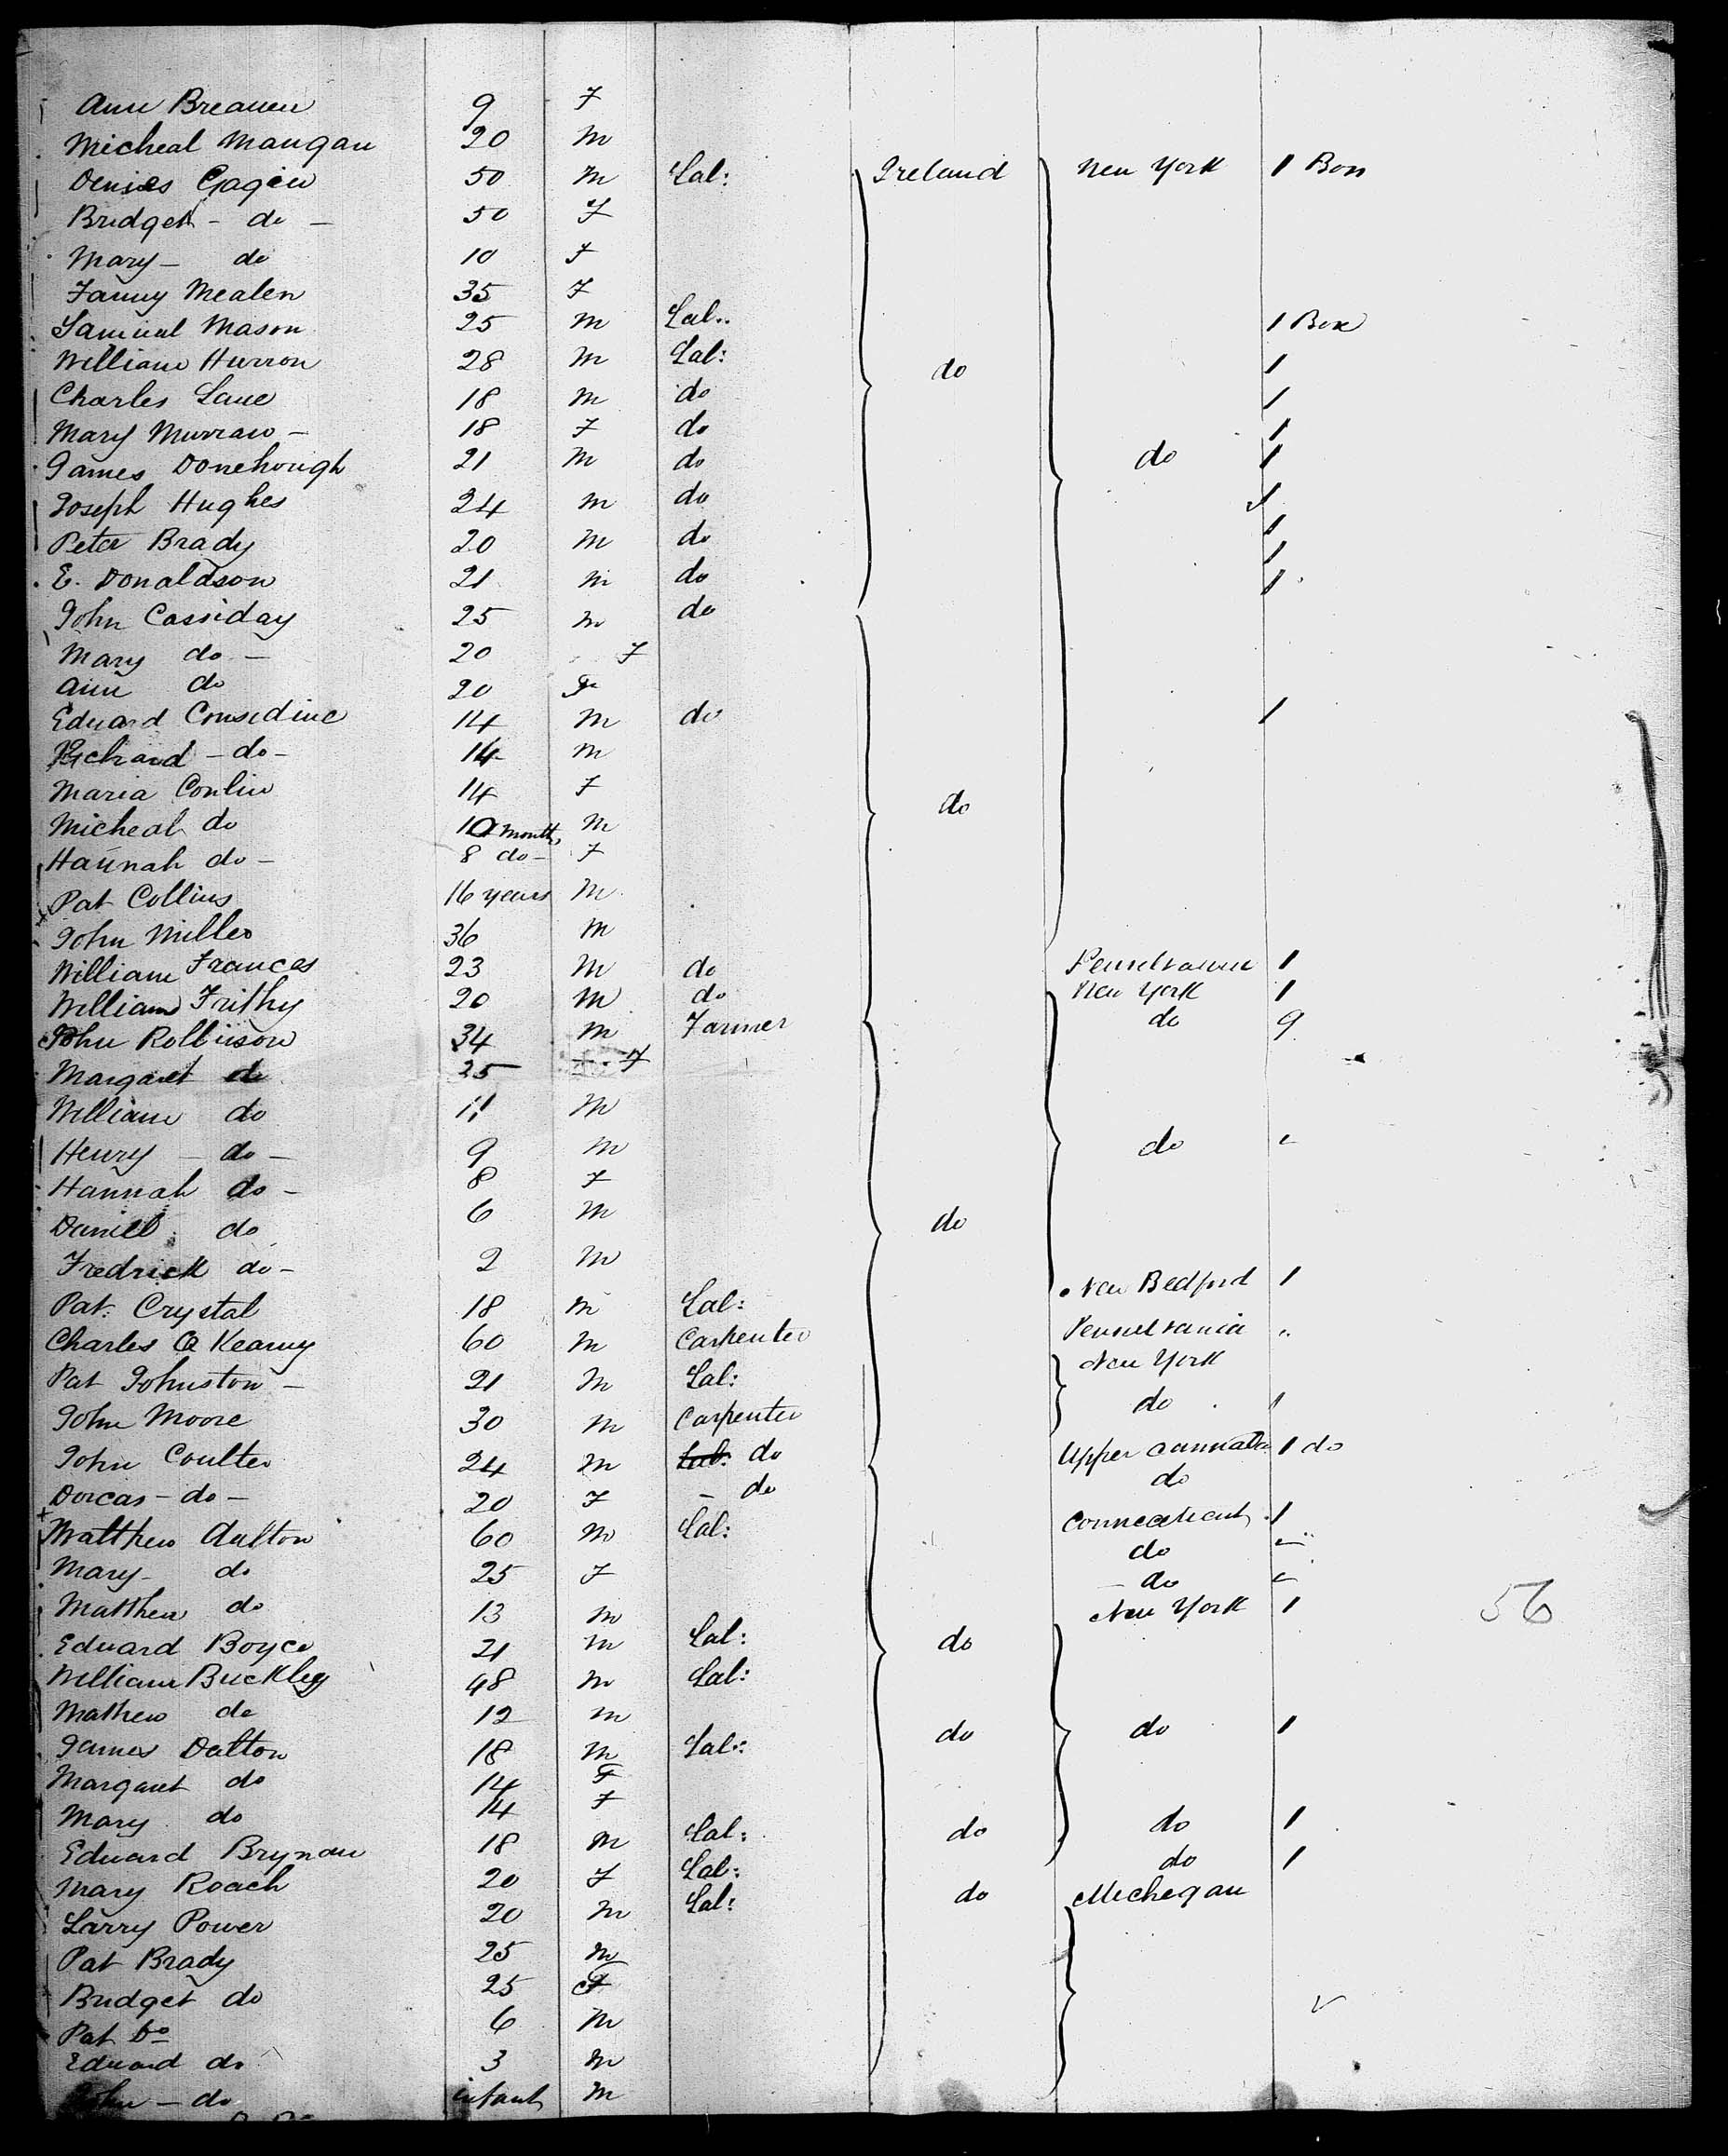 Ann Breanen 9 F
Micheal Mangan 20 M
Denies Gagin 50 M Lab: Ireland New York 1 Box
Bridget - do - 50 F
Mary - do 10 F
Fanny Mealen 35 F
Samual Mason 25 M Lab: 1 Box
William Hurron 28 M Lab: do 1
Charles Lane 18 M do 1
Mary Murraw - 18 F do 1
James Donehough 21 M do do 1
Joseph Hughes 24 M do 1
Peter Brady 20 M do 1
E. Donaldson 21 M do 1
John Cassiday 25 M do 1
Mary do - 20 F
Ann do 20 F
Eduard Consedine 14 M do 1
Richard - do - 14 M
Maria Conlin 14 F do
Micheal do 10 months M
Hannah do - 8 do - F
Pat Collins 16 years M
John Miller 36 M
William Frances 23 M do 1
William Frithy 20 M do New York 1
John Rollinson 34 M Farmer do 9
Margaret do 35 F
William do 11 M
Henry - do - 9 M do
Hannah do - 8 F
Daniel do 6 M do
Fredrick do - 2 M
Pat. Crystal 18 M Lab: New Bedford 1
Charles O Kearny 60 M Carpenter Penselvania "
Pat Johnston - 21 M Lab: New York
John Moore 30 M Carpenter do 1
John Coulter 24 M Lab. do Upper Cannada 1 do
Dorcas - do - 20 F - do do
Matthew Aulton 60 M Lab: Connecticut 1
Mary - do 25 F do
Matthew do 13 M - do
Eduard Boyce 21 M Lab: do New York 1
56
William Buckley 48 M Lab:
Mathew do 12 M
James Dalton 18 M Lab: do do 1
Margaret do 14 F
Mary do 14 F
Eduard Brynan 18 M Lab: do do 1
Mary Roach 20 F Lab: do 1
Larry Power 20 M Lab: do Mechegan
Pat Brady 25 M
Bridget do 25 F
Pat Do 6 M
Eduard do 3 M
John - do infant M